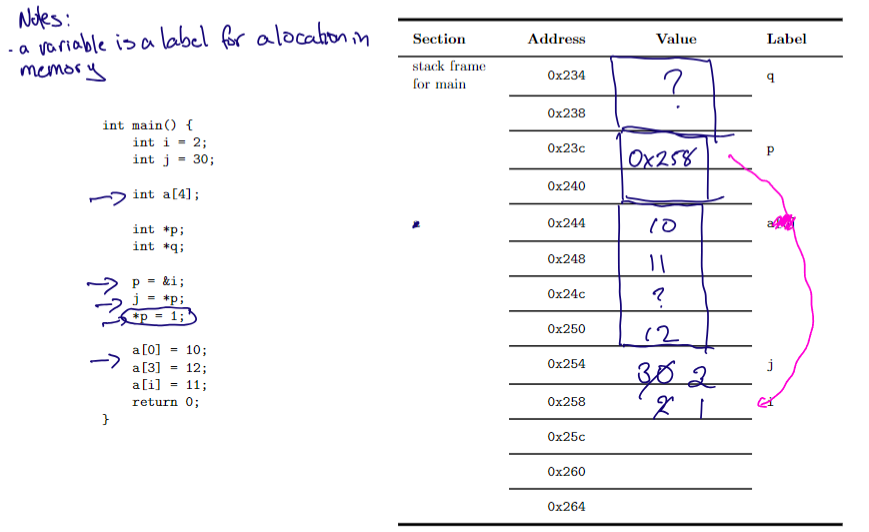 Notes:
- a variable is a label for a location in
memory
int main() {
int i = 2;
int j = 30;
int a[4];
int *p;
int *q;
p = &i;
j = *p;
*p = 1;
a[0] = 10;
a[3] = 12;
a[i] = 11;
return 0;
}
Section Address Value Label
stack frame
for main
0x234 ? q
0x238
0x23c 0x258 p
0x240
0x244 10 a
0x248 11
0x24c ?
0x250 12
0x254 30 2 j
0x258 2 1 i
0x25c
0x260
0x264